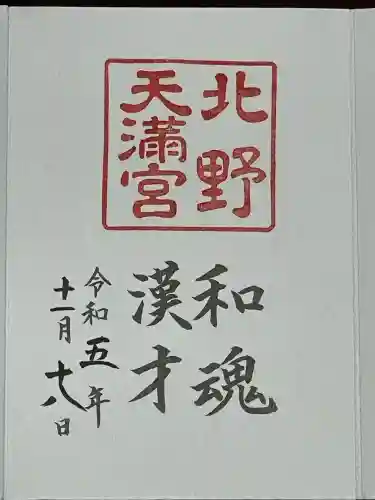 北野
天満宮
和魂
漢才
令和五年
十一月十八日